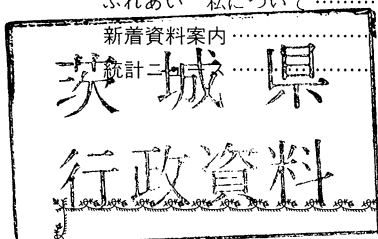 ふれあい 私について…………
新着資料案内…………
統計ニ…………
茨城県
行政資料